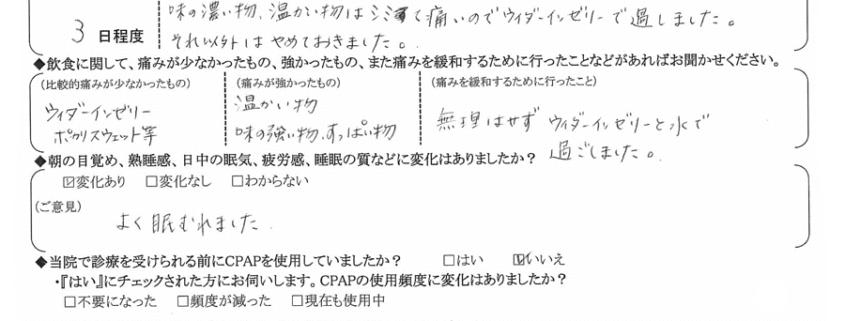 味の濃い物、温かい物はシミて痛いのでウイダーインゼリーで過しました。
3 日程度
それ以外はやめておきました。
◆飲食に関して、痛みが少なかったもの、強かったもの、また痛みを緩和するために行ったことなどがあればお聞かせください。
(比較的痛みが少なかったもの) (痛みが強かったもの) (痛みを緩和するために行ったこと)
ウイダーインゼリー
ポカリスウェット等
温かい物
味の強い物、すっぱい物
無理はせず ウイダーインゼリーと水で
過ごしました。
◆朝の目覚め、熟睡感、日中の眠気、疲労感、睡眠の質などに変化はありましたか?
☑変化あり □変化なし □わからない
(ご意見)
よく眠むれました
◆当院で診療を受けられる前にCPAPを使用していましたか? □はい ☑いいえ
・『はい』にチェックされた方にお伺いします。CPAPの使用頻度に変化はありましたか?
□不要になった □頻度が減った □現在も使用中